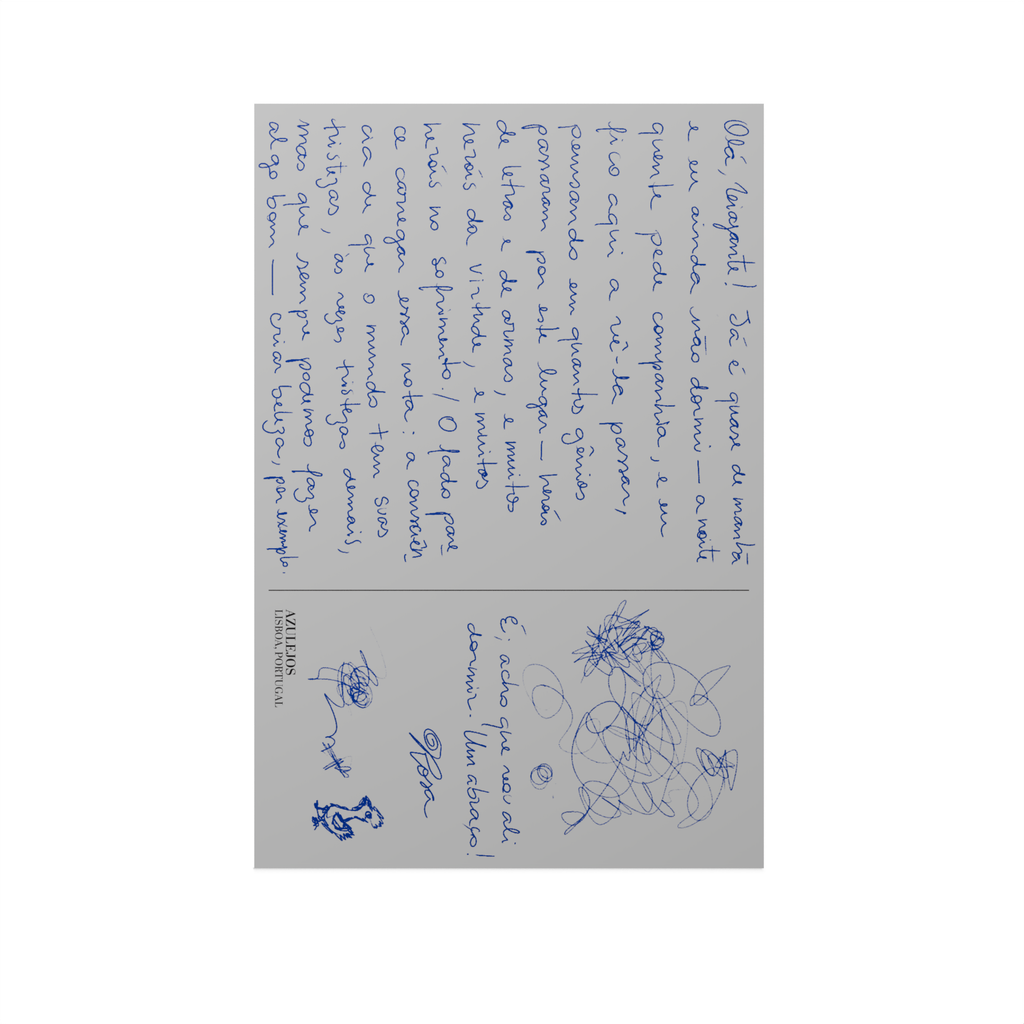 Olá, viajante! Já é quase de manhã
e eu ainda não dormi — a noite
quente pede companhia, e eu
fico aqui a vê-la passar,
pensando em quantos gênios
passaram por este lugar — heróis
de letras e de armas, e muitos
heróis da virtude, e muitos
heróis no sofrimento. / O fado pare-
ce carregar essa nota: a consciên-
cia de que o mundo tem suas
tristezas, às vezes tristezas demais,
mas que sempre podemos fazer
algo bom — criar beleza, por exemplo.
É; acho que vou ali
dormir. Um abraço!
Rosa
AZULEJOS
LISBOA, PORTUGAL